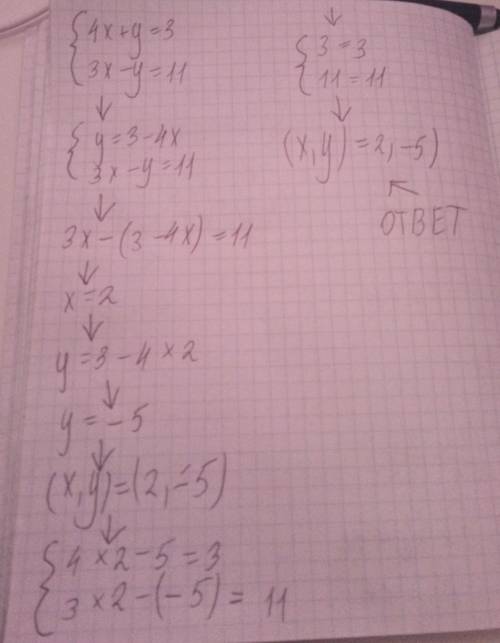 {4x+y=3
{3x-y=11
↓
{y=3-4x
{3x-y=11
↓
3x-(3-4x)=11
↓
x=2
↓
y=3-4×2
↓
y=-5
↓
(x,y)=(2,-5)
↓
{4×2-5=3
{3×2-(-5)=11
↓
{3=3
{11=11
↓
(x,y)=2,-5)
↖
ОТВЕТ